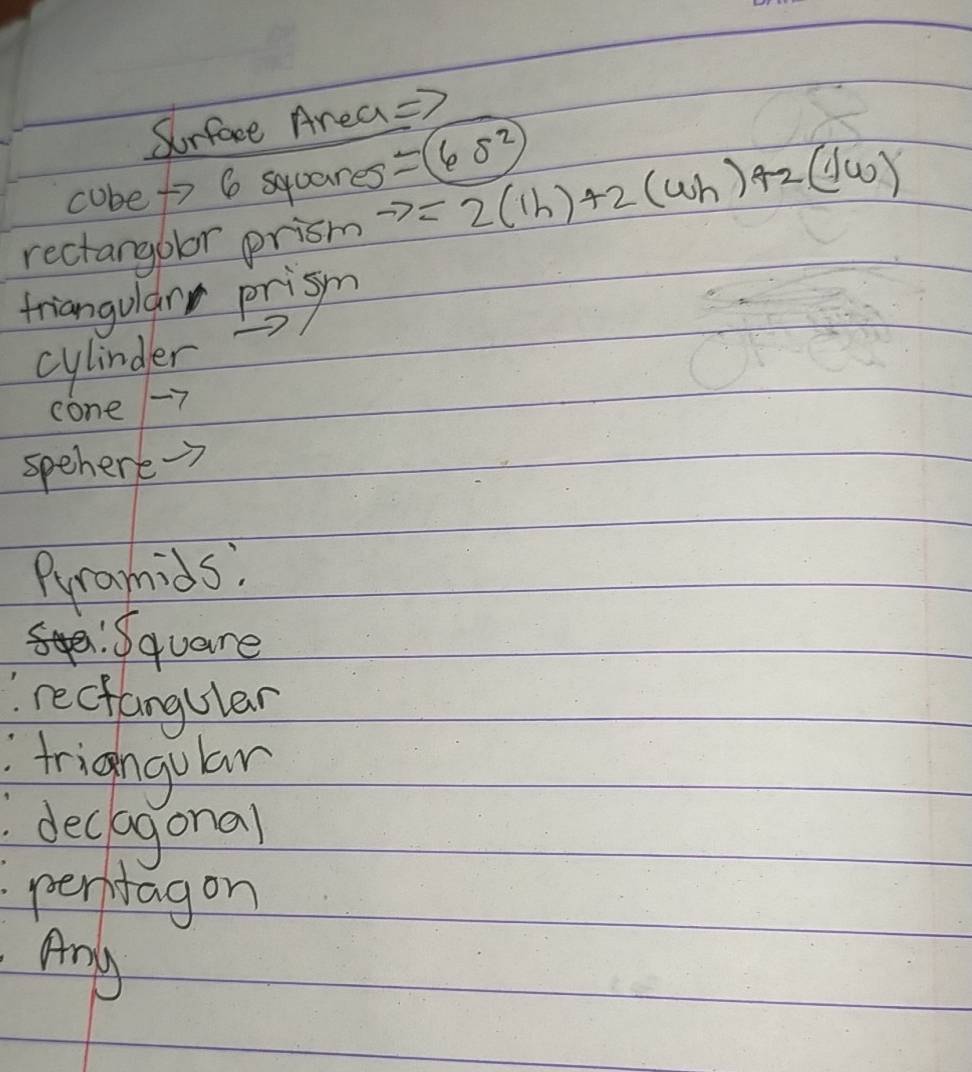 Surface Area =>
cube → 6 squares = 6 s²
rectangular prism → = 2(lh)+2(wh)+2(lw)
triangular prism
cylinder →
cone →
spehere →
Pyramids:
: Square
: rectangular
: triangular
: decagonal
: pentagon
. Any